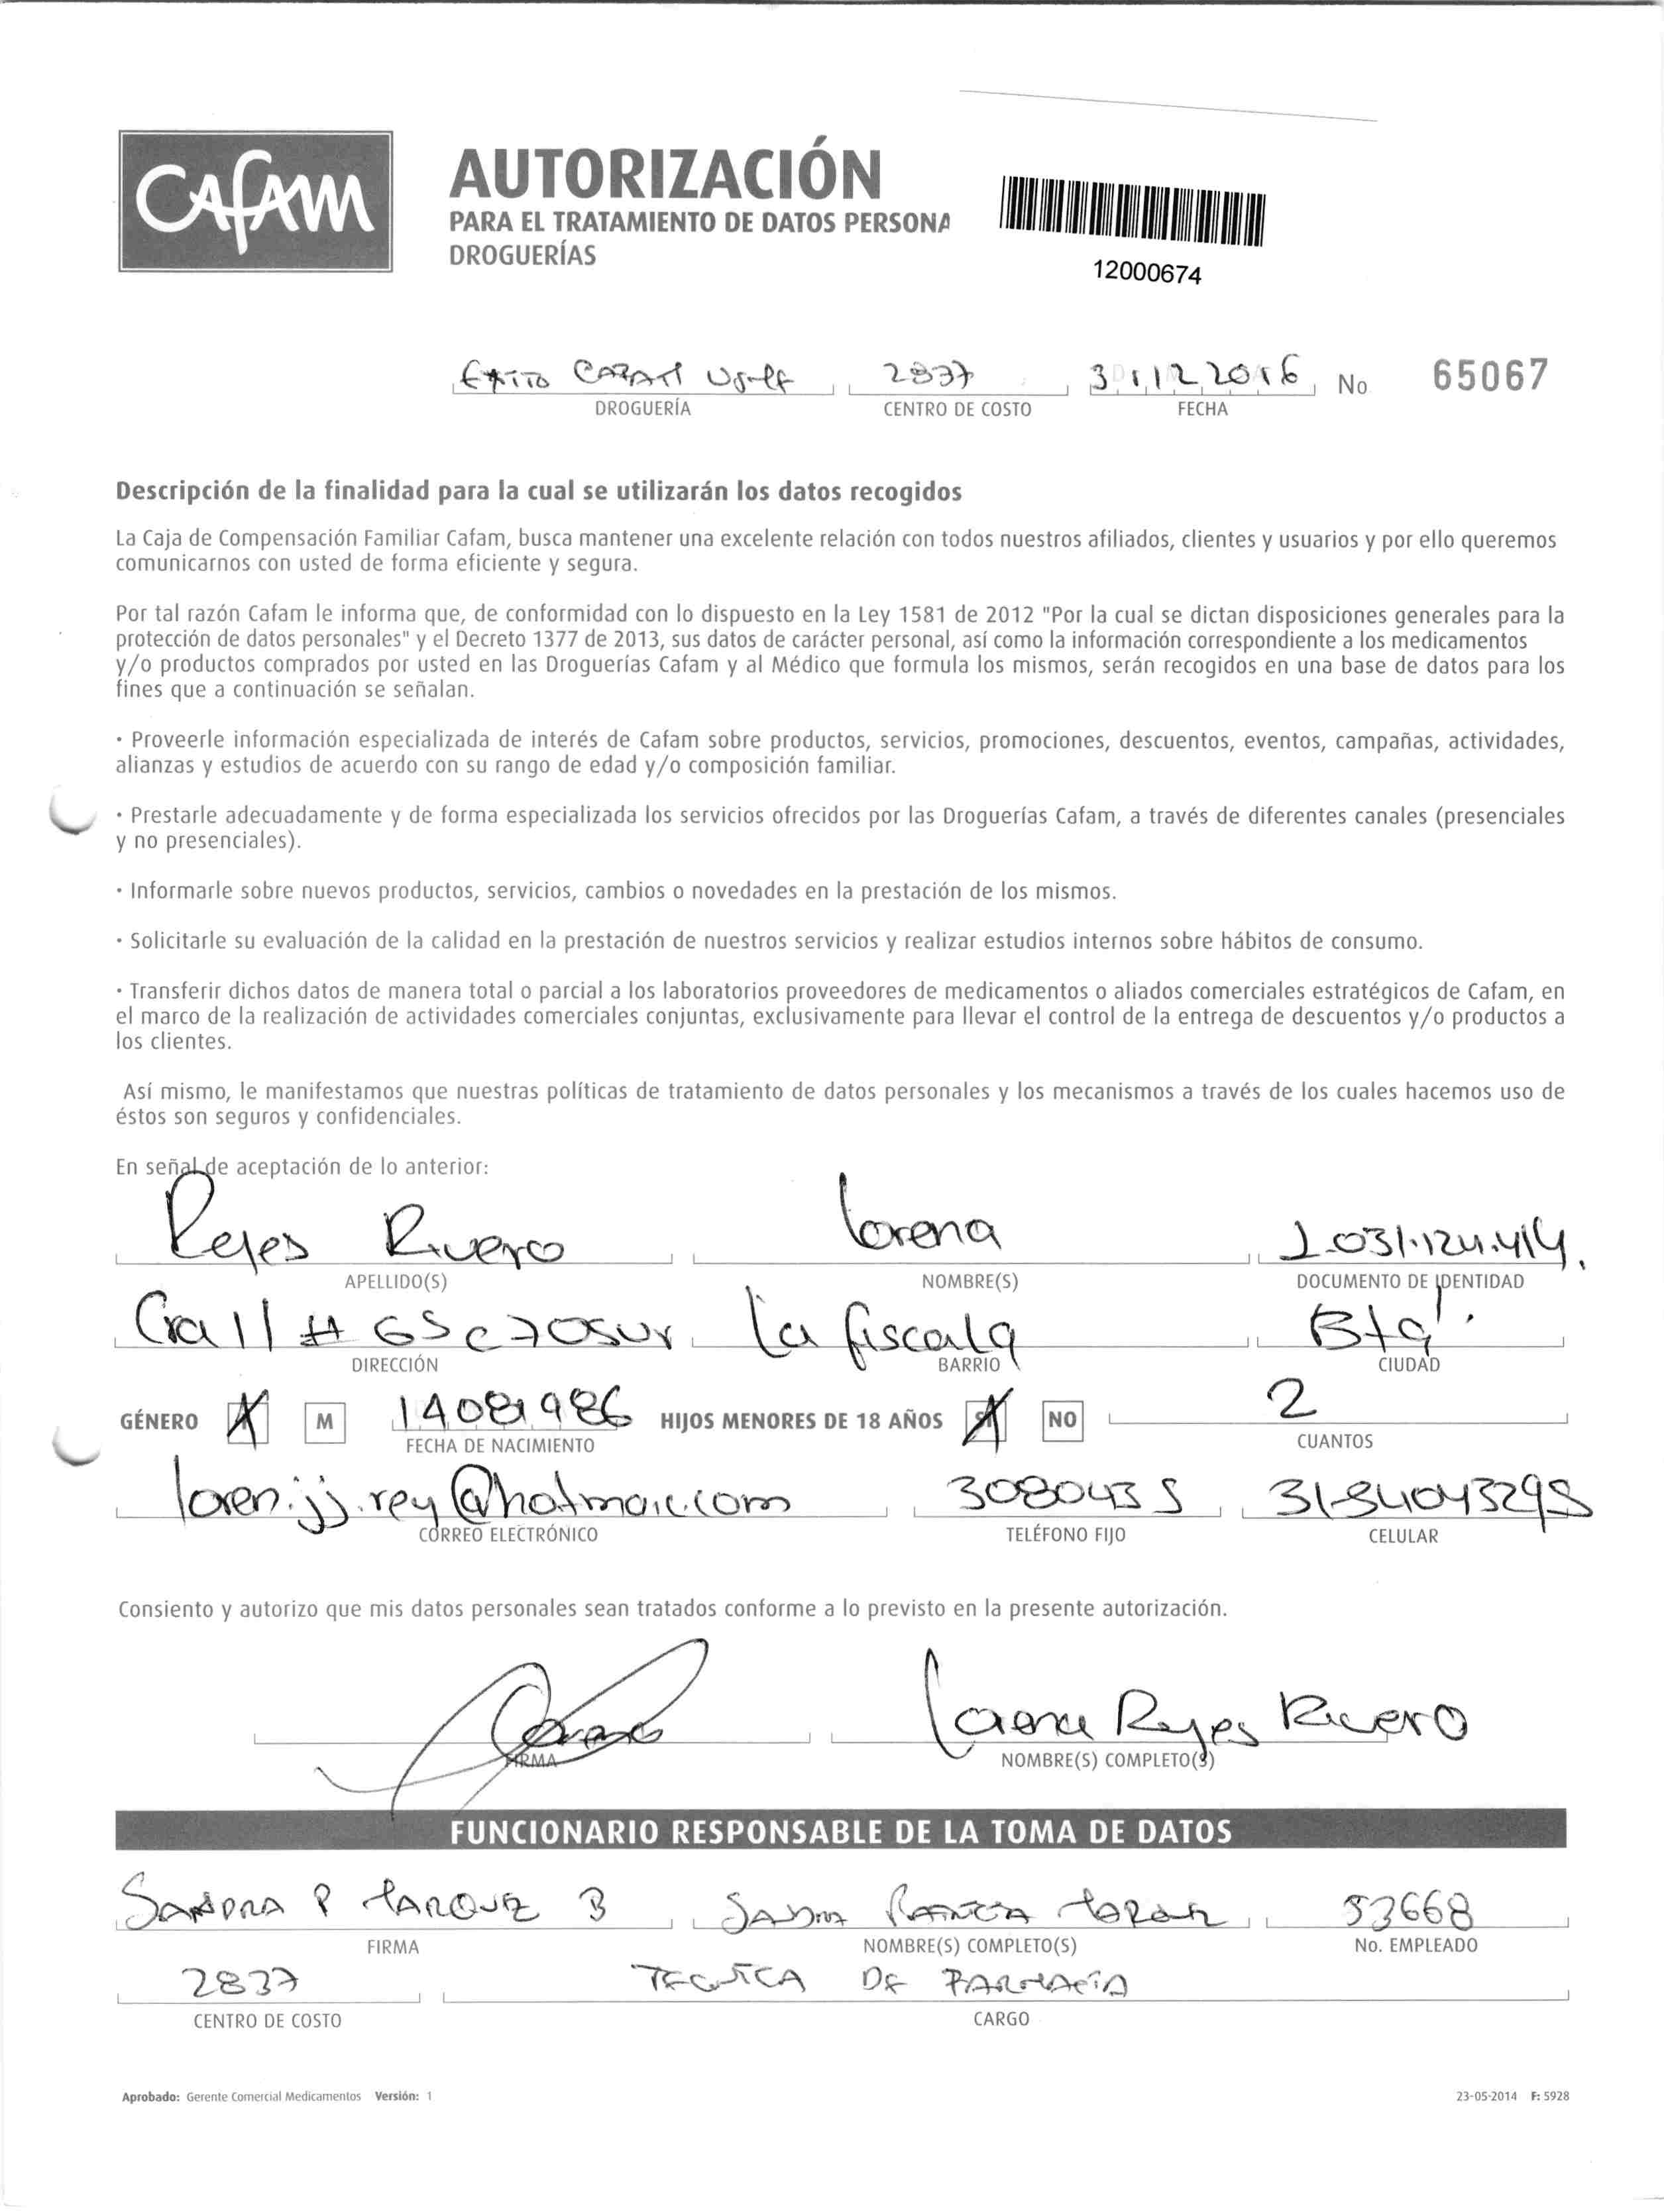 Cafam
AUTORIZACIÓN
PARA EL TRATAMIENTO DE DATOS PERSONA
DROGUERÍAS
12000674
Exito Cafam 2837 31 12 2016 No 65067
DROGUERÍA CENTRO DE COSTO FECHA
Descripción de la finalidad para la cual se utilizarán los datos recogidos
La Caja de Compensación Familiar Cafam, busca mantener una excelente relación con todos nuestros afiliados, clientes y usuarios y por ello queremos
comunicarnos con usted de forma eficiente y segura.
Por tal razón Cafam le informa que, de conformidad con lo dispuesto en la Ley 1581 de 2012 "Por la cual se dictan disposiciones generales para la
protección de datos personales" y el Decreto 1377 de 2013, sus datos de carácter personal, así como la información correspondiente a los medicamentos
y/o productos comprados por usted en las Droguerías Cafam y al Médico que formula los mismos, serán recogidos en una base de datos para los
fines que a continuación se señalan.
· Proveerle información especializada de interés de Cafam sobre productos, servicios, promociones, descuentos, eventos, campañas, actividades,
alianzas y estudios de acuerdo con su rango de edad y/o composición familiar.
· Prestarle adecuadamente y de forma especializada los servicios ofrecidos por las Droguerías Cafam, a través de diferentes canales (presenciales
y no presenciales).
· Informarle sobre nuevos productos, servicios, cambios o novedades en la prestación de los mismos.
· Solicitarle su evaluación de la calidad en la prestación de nuestros servicios y realizar estudios internos sobre hábitos de consumo.
· Transferir dichos datos de manera total o parcial a los laboratorios proveedores de medicamentos o aliados comerciales estratégicos de Cafam, en
el marco de la realización de actividades comerciales conjuntas, exclusivamente para llevar el control de la entrega de descuentos y/o productos a
los clientes.
Así mismo, le manifestamos que nuestras políticas de tratamiento de datos personales y los mecanismos a través de los cuales hacemos uso de
éstos son seguros y confidenciales.
En señal de aceptación de lo anterior:
Reyes Rivero Lorena 1.031.124.414.
APELLIDO(S) NOMBRE(S) DOCUMENTO DE IDENTIDAD
Cra 11 # 65c 70sur La fiscala Bta'.
DIRECCIÓN BARRIO CIUDAD
GÉNERO M 14081986 HIJOS MENORES DE 18 AÑOS SI NO 2
FECHA DE NACIMIENTO CUANTOS
loren.jj.rey@hotmail.com 3080435 3184043298
CORREO ELECTRÓNICO TELÉFONO FIJO CELULAR
Consiento y autorizo que mis datos personales sean tratados conforme a lo previsto en la presente autorización.
Lorena Reyes Rivero
FIRMA NOMBRE(S) COMPLETO(S)
FUNCIONARIO RESPONSABLE DE LA TOMA DE DATOS
SANDRA P MARQUEZ B 53668
FIRMA NOMBRE(S) COMPLETO(S) No. EMPLEADO
2837 TECNICA DE FARMACIA
CENTRO DE COSTO CARGO
Aprobado: Gerente Comercial Medicamentos Versión: 1 23-05-2014 F: 5928